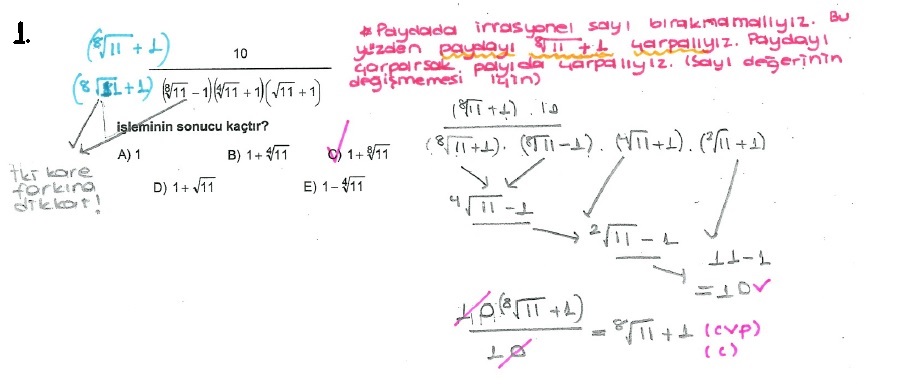 1.
(⁸√11 + 1)
10
(⁸√11 + 1) (⁸√11 − 1)(⁴√11 + 1)(√11 + 1)
işleminin sonucu kaçtır?
A) 1 B) 1+ ⁴√11 C) 1+ ⁸√11
D) 1+ √11 E) 1− ⁴√11
İki kare
farkına
dikkat!
* Paydada irrasyonel sayı bırakmamalıyız. Bu
yüzden paydayı ⁸√11 + 1 çarpalıyız. Paydayı
çarparsak payıda çarpalıyız. (Sayı değerinin
değişmemesi için)
(⁸√11 + 1) . 10
(⁸√11 + 1) . (⁸√11 − 1) . (⁴√11 + 1) . (²√11 + 1)
⁴√11 − 1
²√11 − 1
11 − 1
= 10 ✓
10 (⁸√11 + 1)
10
= ⁸√11 + 1 (cvp)
(c)